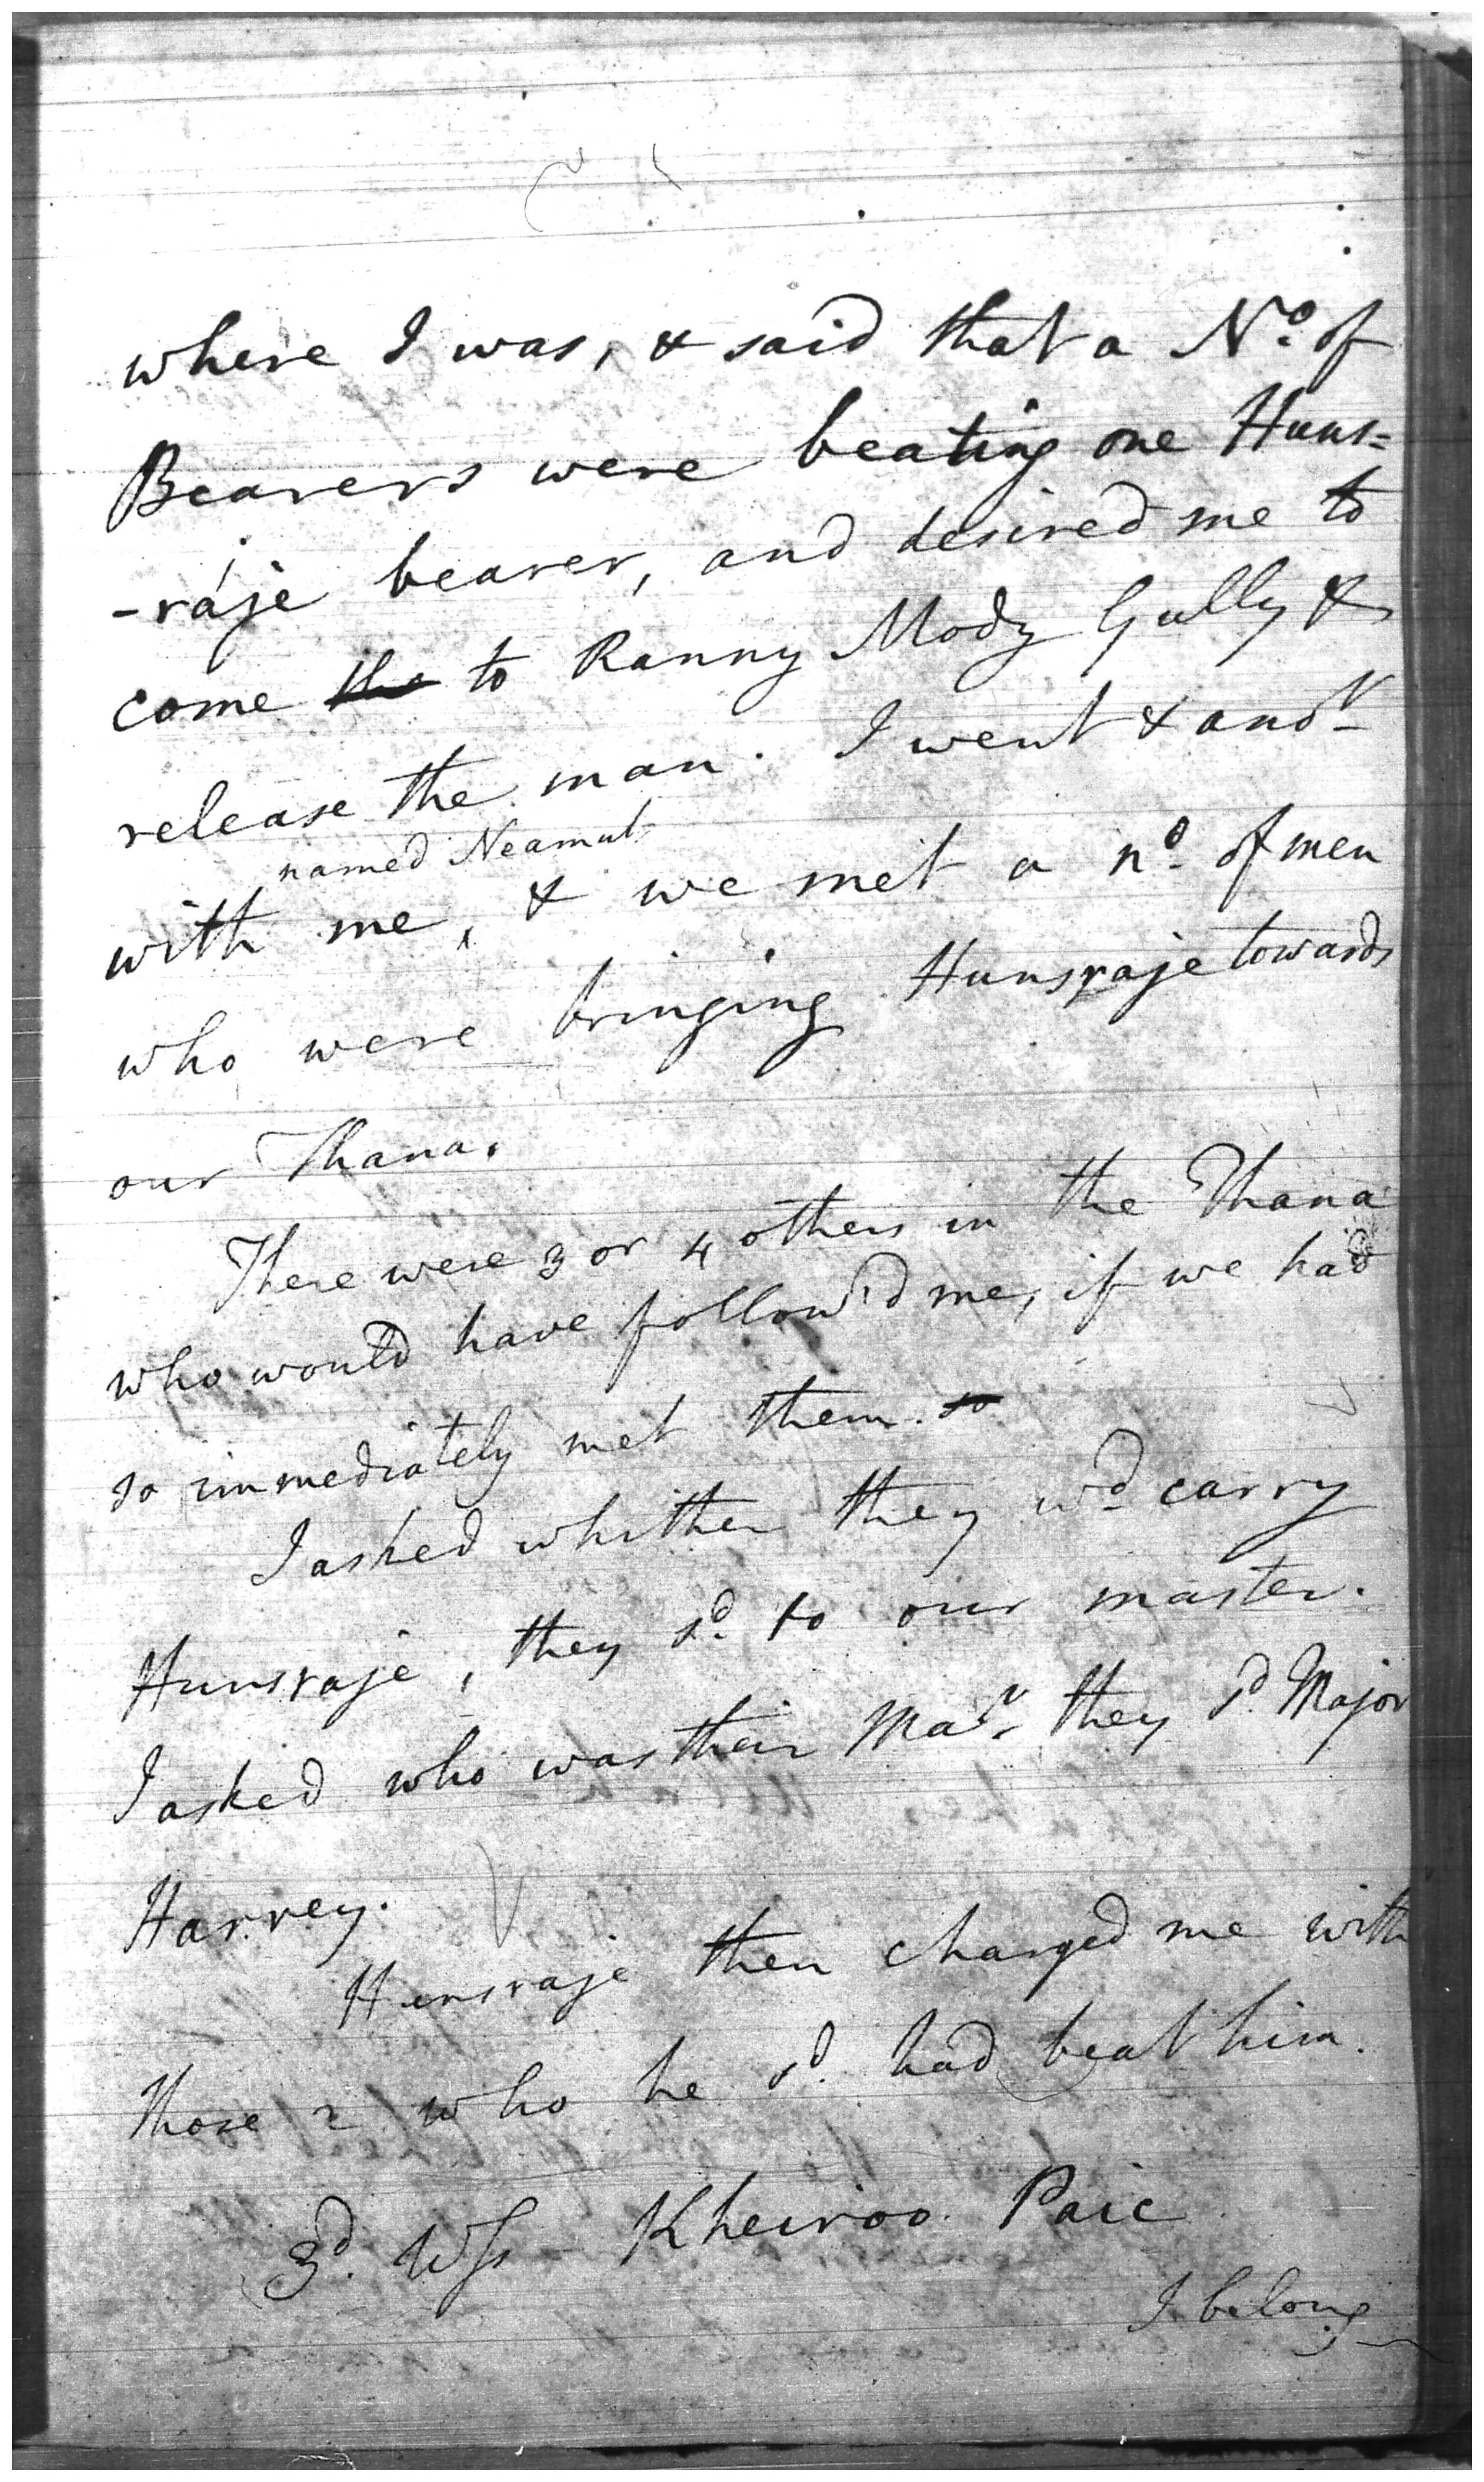 where I was, & said that a No. of
Bearers were beating one Huns=
-raje bearer, and desired me to
come the to Ranny Mody Gully &
release the man. I went & anor
named Neamut
with me, & we met a no. of men
who were bringing Hunsraje towards
our Thana.
There were 3 or 4 others in the Thana
who would have follow'd me, if we had
so immediately met them. so
I asked whither they wd carry
Hunsraje, they sd. to our master.
I asked who was their Masr they sd. Major
Harvey.
Hunsraje then charged me with
those 2 who he sd. had beat him.
3d. Wss Kheiroo Paic
I belong